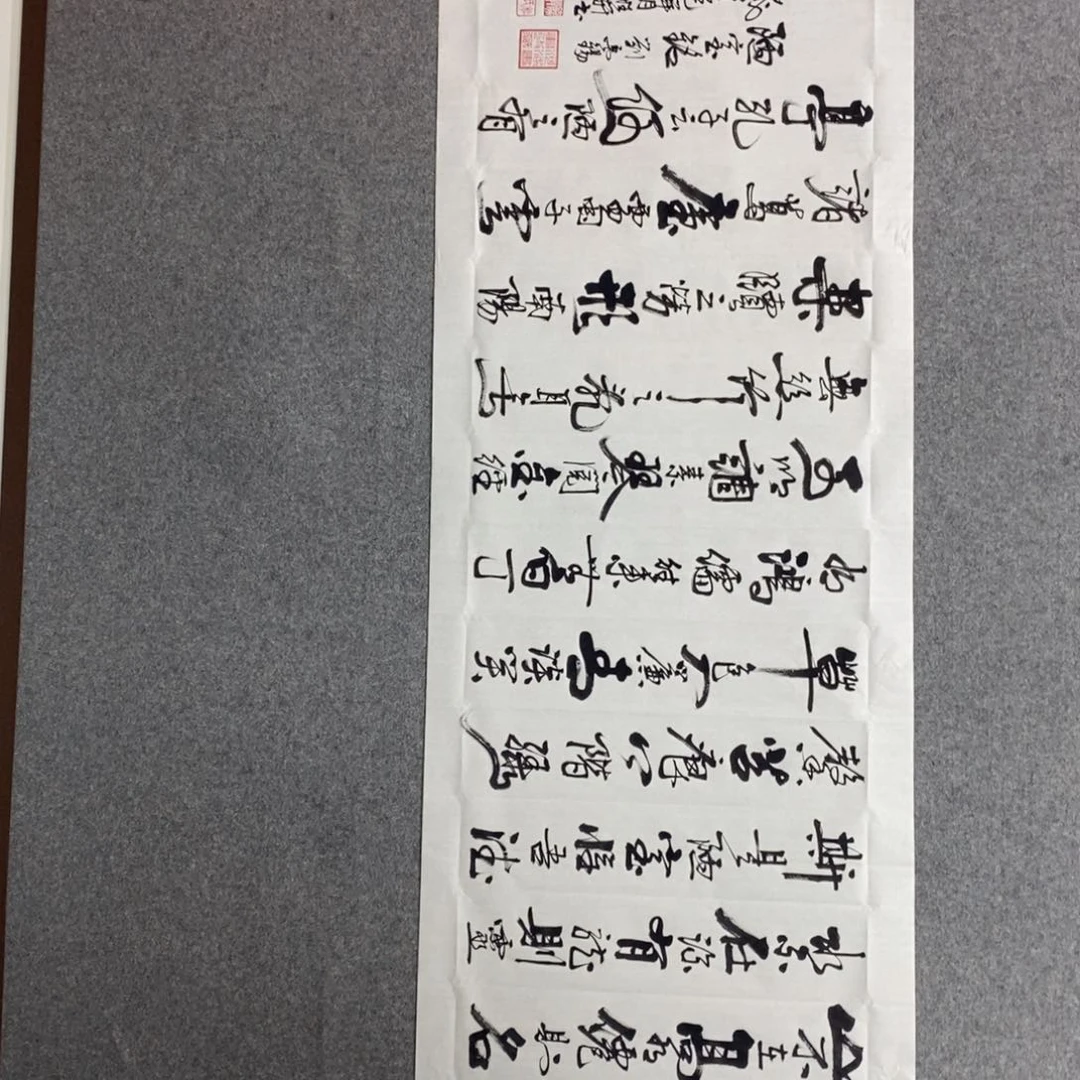 山不在高有僊則名
水不在深有龍則靈
斯是陋室惟吾德
馨苔痕上階綠
草色入簾青談笑
有鴻儒往來無白丁
可以調素琴閱金經
無絲竹之亂耳無
案牘之勞形南陽
諸葛廬西蜀子雲
亭孔子云何陋之有
陋室銘劉禹錫